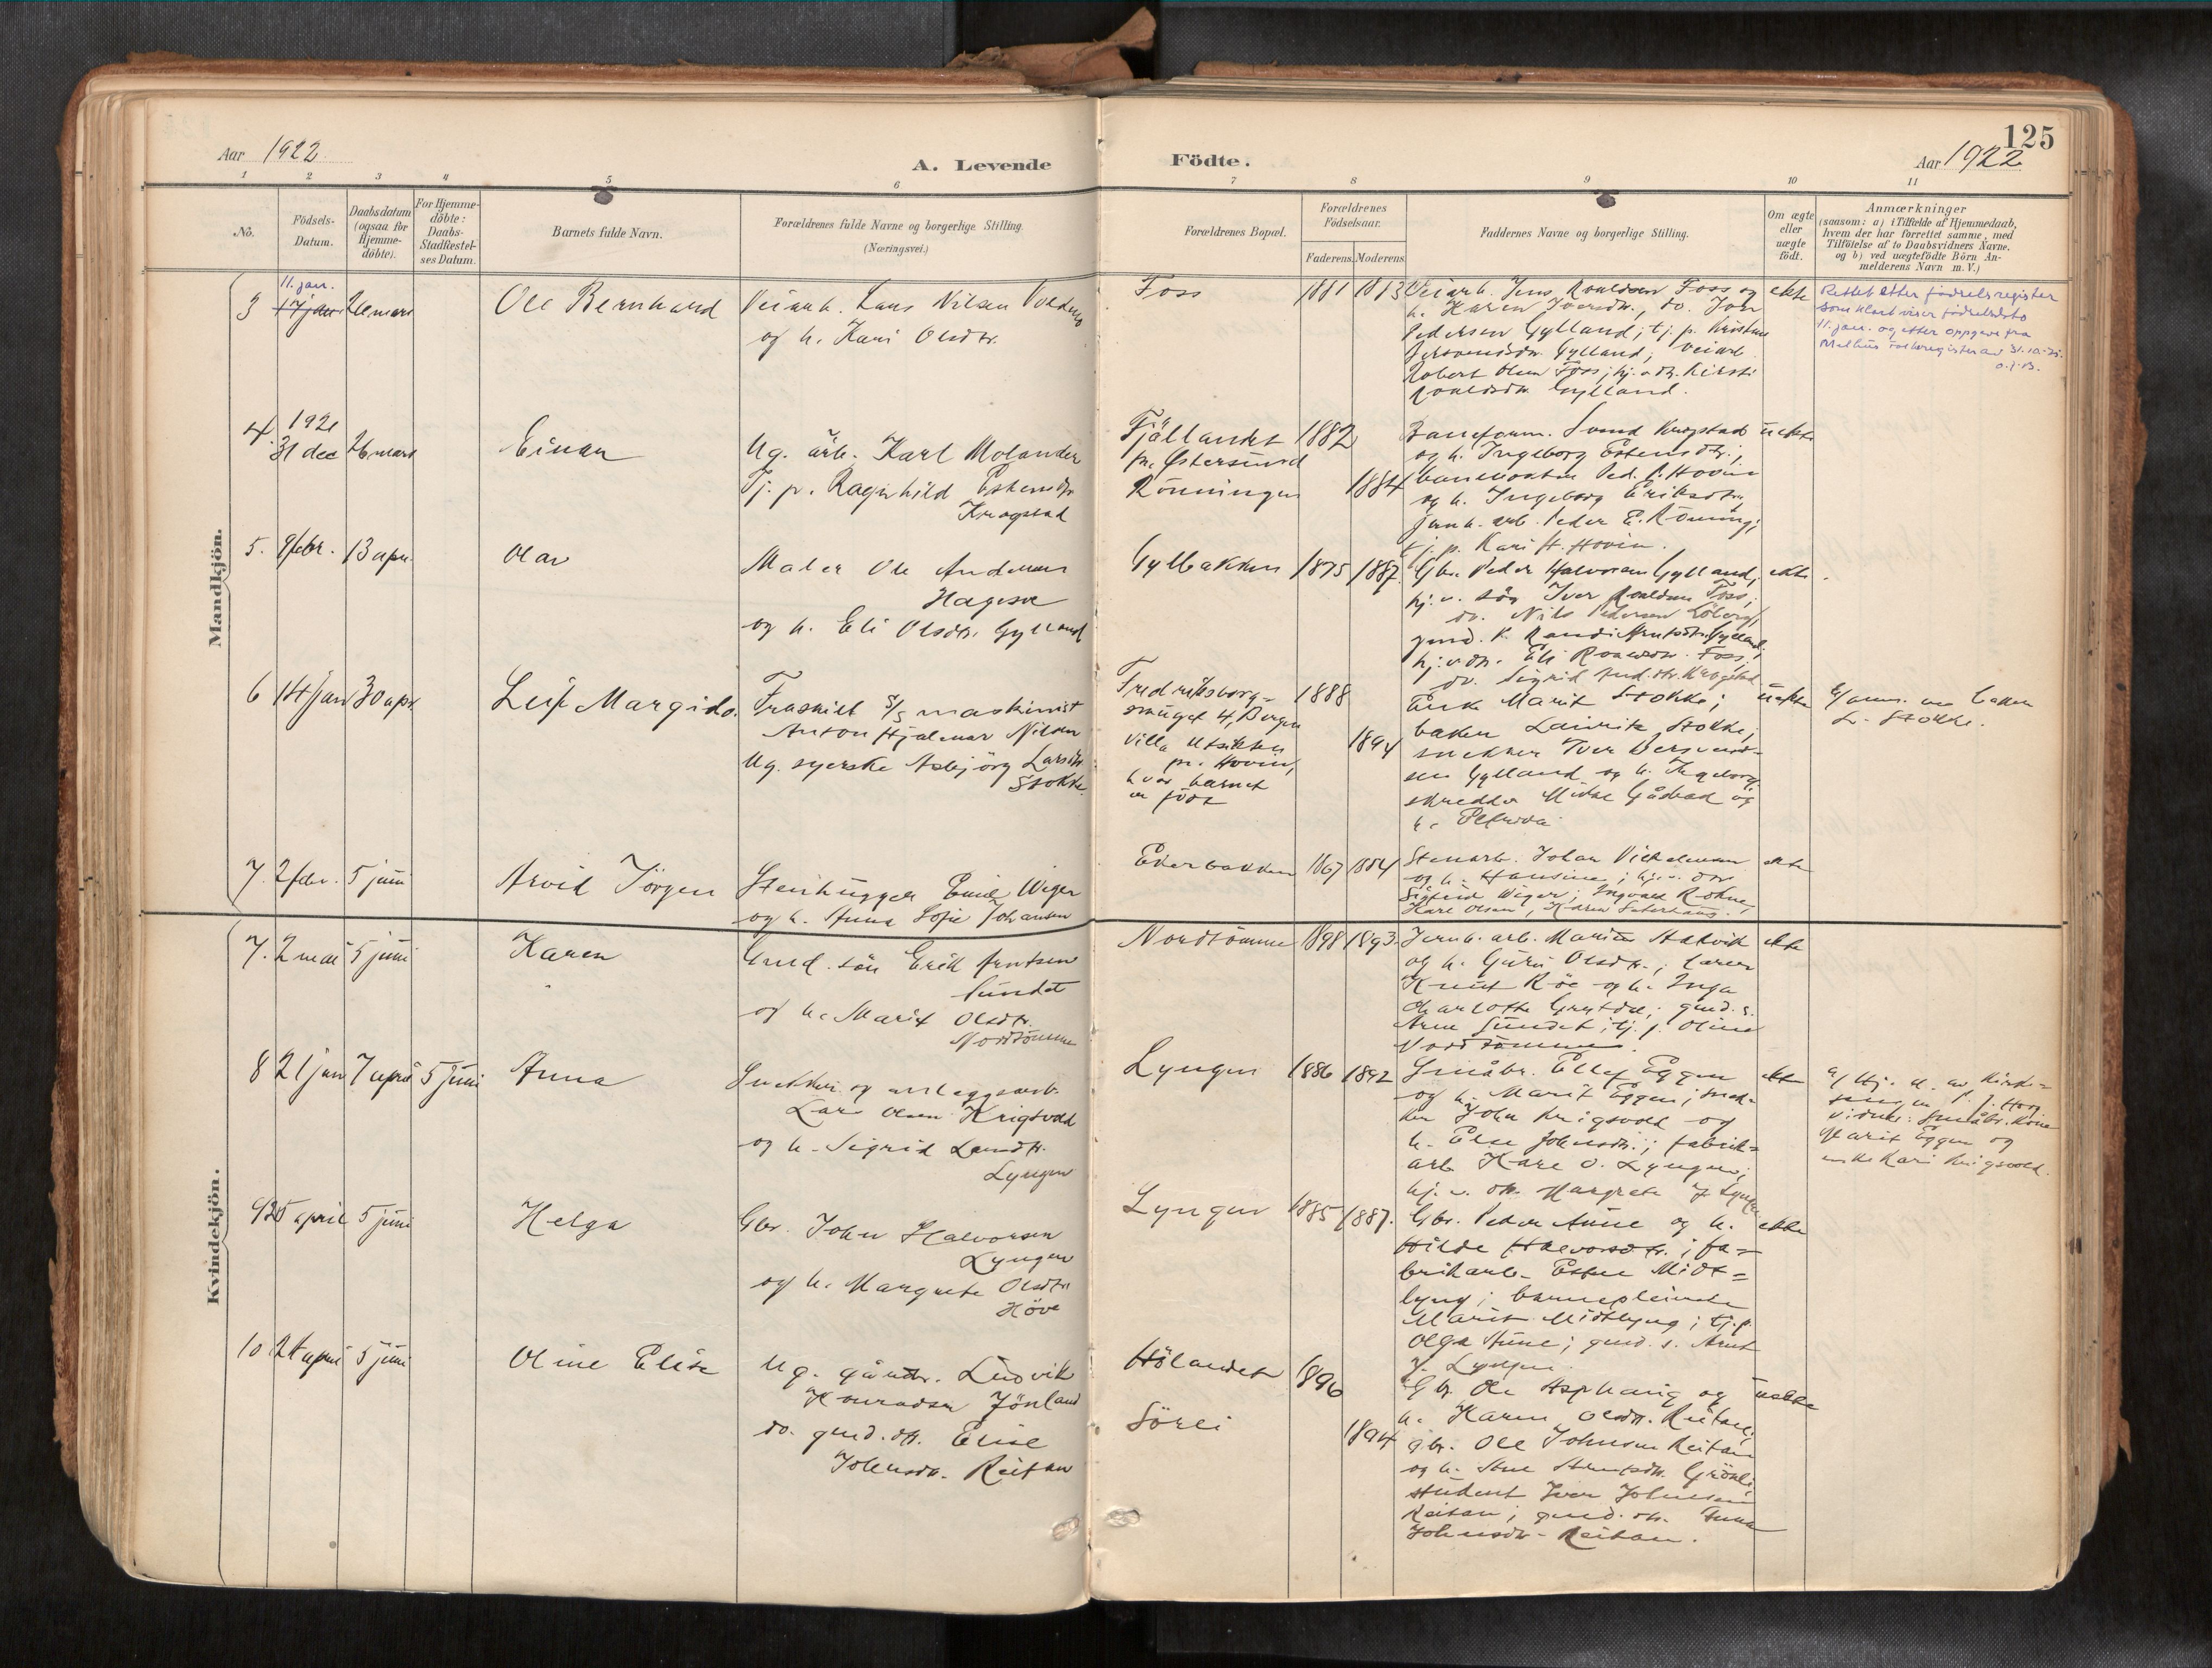 125
Aar 1922
A. Levende
Födte.
Aar 1922
1 2 3 4 5 6 7 8 9 10 11
No.
Födsels-
Datum.
Daabsdatum
(ogsaa for
Hjemme-
döbte).
For Hjemme-
döbte:
Daabs-
Stadfæstel-
ses Datum.
Barnets fulde Navn.
Forældrenes fulde Navne og borgerlige Stilling.
(Næringsvei.)
Forældrenes Bopæl.
Forældrenes
Födselsaar.
Faderens. Moderens.
Faddernes Navne og borgerlige Stilling.
Om ægte
eller
uægte
födt.
Anmærkninger
(saasom: a) i Tilfælde af Hjemmedaab,
hvem der har forrettet samme, med
Tilföielse af to Daabsvidners Navne.
og b) ved uægtefödte Börn An-
melderens Navn m. V.)
Mandkjön.
11. jan.
3 17 jan 26 mars
Ole Bernhard
Veiarb. Lars Nilsen
og h. Kari Olsdtr.
Foss
1881 1883
Veiarb. Jens Roaldsen Foss og
h. Karen Iversdtr., do. Jon
Pedersen Gylland; tj. p. Kristine
Gylland; veiarb.
Robert Olsen Foss; hj. v. dtr. Kirsti
Roaldsdtr. Gylland.
ekte
Rettet etter födselsregister
som klart viser födselsdato
11. jan. og etter oppgave fra
Melhus folkeregister av 31.10.75.
4. 1921
31 dec 26 mars
Einar
Ug. arb. Karl Molander
Tj. p. Ragnhild Estensdtr.
Krogstad
Fjällandet
pr. Østersund
Rönningen
1882
1884
Baneform. Svend Krogstad
og h. Ingeborg Estensdtr.;
banevokter Ped. P. Hovin
og h. Ingeborg Eriksdtr.,
jernb. arb. Peder E. Rönning;
tj. p. Kari H. Hovin.
uekte
5. 9 febr. 13 apr.
Olav
Maler Ole Andersen
og h. Eli Olsdtr. Gylland
Gylbakken
1875 1887.
Gbr. Peder Halvorsen Gylland;
hj. v. sön Iver Roaldsen Foss;
do. Nils Pedersen Löberg;
gmd. k. Randi Arntsdtr. Gylland;
hj. v. dtr. Eli Roaldsdtr. Foss;
do. Sigrid Krogstad
ekte.
6 14 jan 30 apr.
Leif Margido.
Fraskilt S/S maskinist
Anton Hjalmar Nilsen
Ug. syerske Asbjörg Larsdtr.
Stokke.
Fredriksborg-
smuget 4, Bergen
Villa Utsikten
pr. Hovin,
hvor barnet
er födt
1888
1894
Enke Marit Stokke;
baker Laurits Stokke;
snekker Iver
sen Gylland og h. Ingeborg;
skredder Mikal Gåsbak og
h. Elfrida
uekte
b/ anm. av baker
L. Stokke.
7. 2 febr. 5 juni
Arvid Jörgen
Stenhugger Emil Wiger
og h. Anna Sofie Johansen
Ekerbakken
1867 1884
Stenarb. Johan
og h. Hansine; hj. v. dtr
Sigfrid Wiger; Ingvald Rohne,
Karl Olsen,
ekte
Kvindekjön.
7. 2 mai 5 juni
Karen
Gmd. sön Erik Arntsen
Sundet
og h. Marit Olsdtr.
Nordtömme
Nordtömme
1898 1893.
Jernb. arb. Marius Halvik
og h. Guri Olsdtr.; lærer
Knut Röe og h. Inga
Charlotte; gmd. s.
Arne Sundet; tj. p. Oline
Nordtömme.
ekte
8 21 jan 7 april 5 juni
Anna
Snekker og anleggsarb.
Lars Olsen Krigsvoll
og h. Sigrid Larsdtr.
Lyngen
Lyngen
1886 1892
Småbr. Ellef Eggen
og h. Marit Eggen; snek-
ker John Krigsvoll og
h. Else Johnsdtr.; fabrik-
arb. Kare O. Lyngen;
hj. v. dtr. Margrete J. Lyngen
ekte
a/ Hj. d. av kirke-
P. J. Hoøg
vidner: småbr. kone
Marit Eggen og
enke Kari Krigsvoll.
9 25 april 5 juni
Helga
Gbr. John Halvorsen
Lyngen
og h. Margrete Olsdtr.
Höve
Lyngen
1885 1887.
Gbr. Peder Aune og h.
Hilde Halvorsdtr.; fa-
brikarb. Esten Midt-
lyng; barnepleierske
Marit Midtlyng; tj. p.
Olga Aune; gmd. s. Arnt
J. Lyngen.
ekte
10 24 april 5 juni
Oline Elise
Ug. gårdbr. Ludvik
Konradsen Jönland
do. gmd. dtr. Elise
Johnsdtr. Reitan
Hölandet
Sörli
1896
1894
Gbr. Ole Asphaug og
h. Karen Olsdtr. Reitan;
gbr. Ole Johnsen Reitan
og h. Ane Grönli;
student Iver Johnsen
Reitan; gmd. dtr. Anna
Johnsdtr. Reitan.
uekte